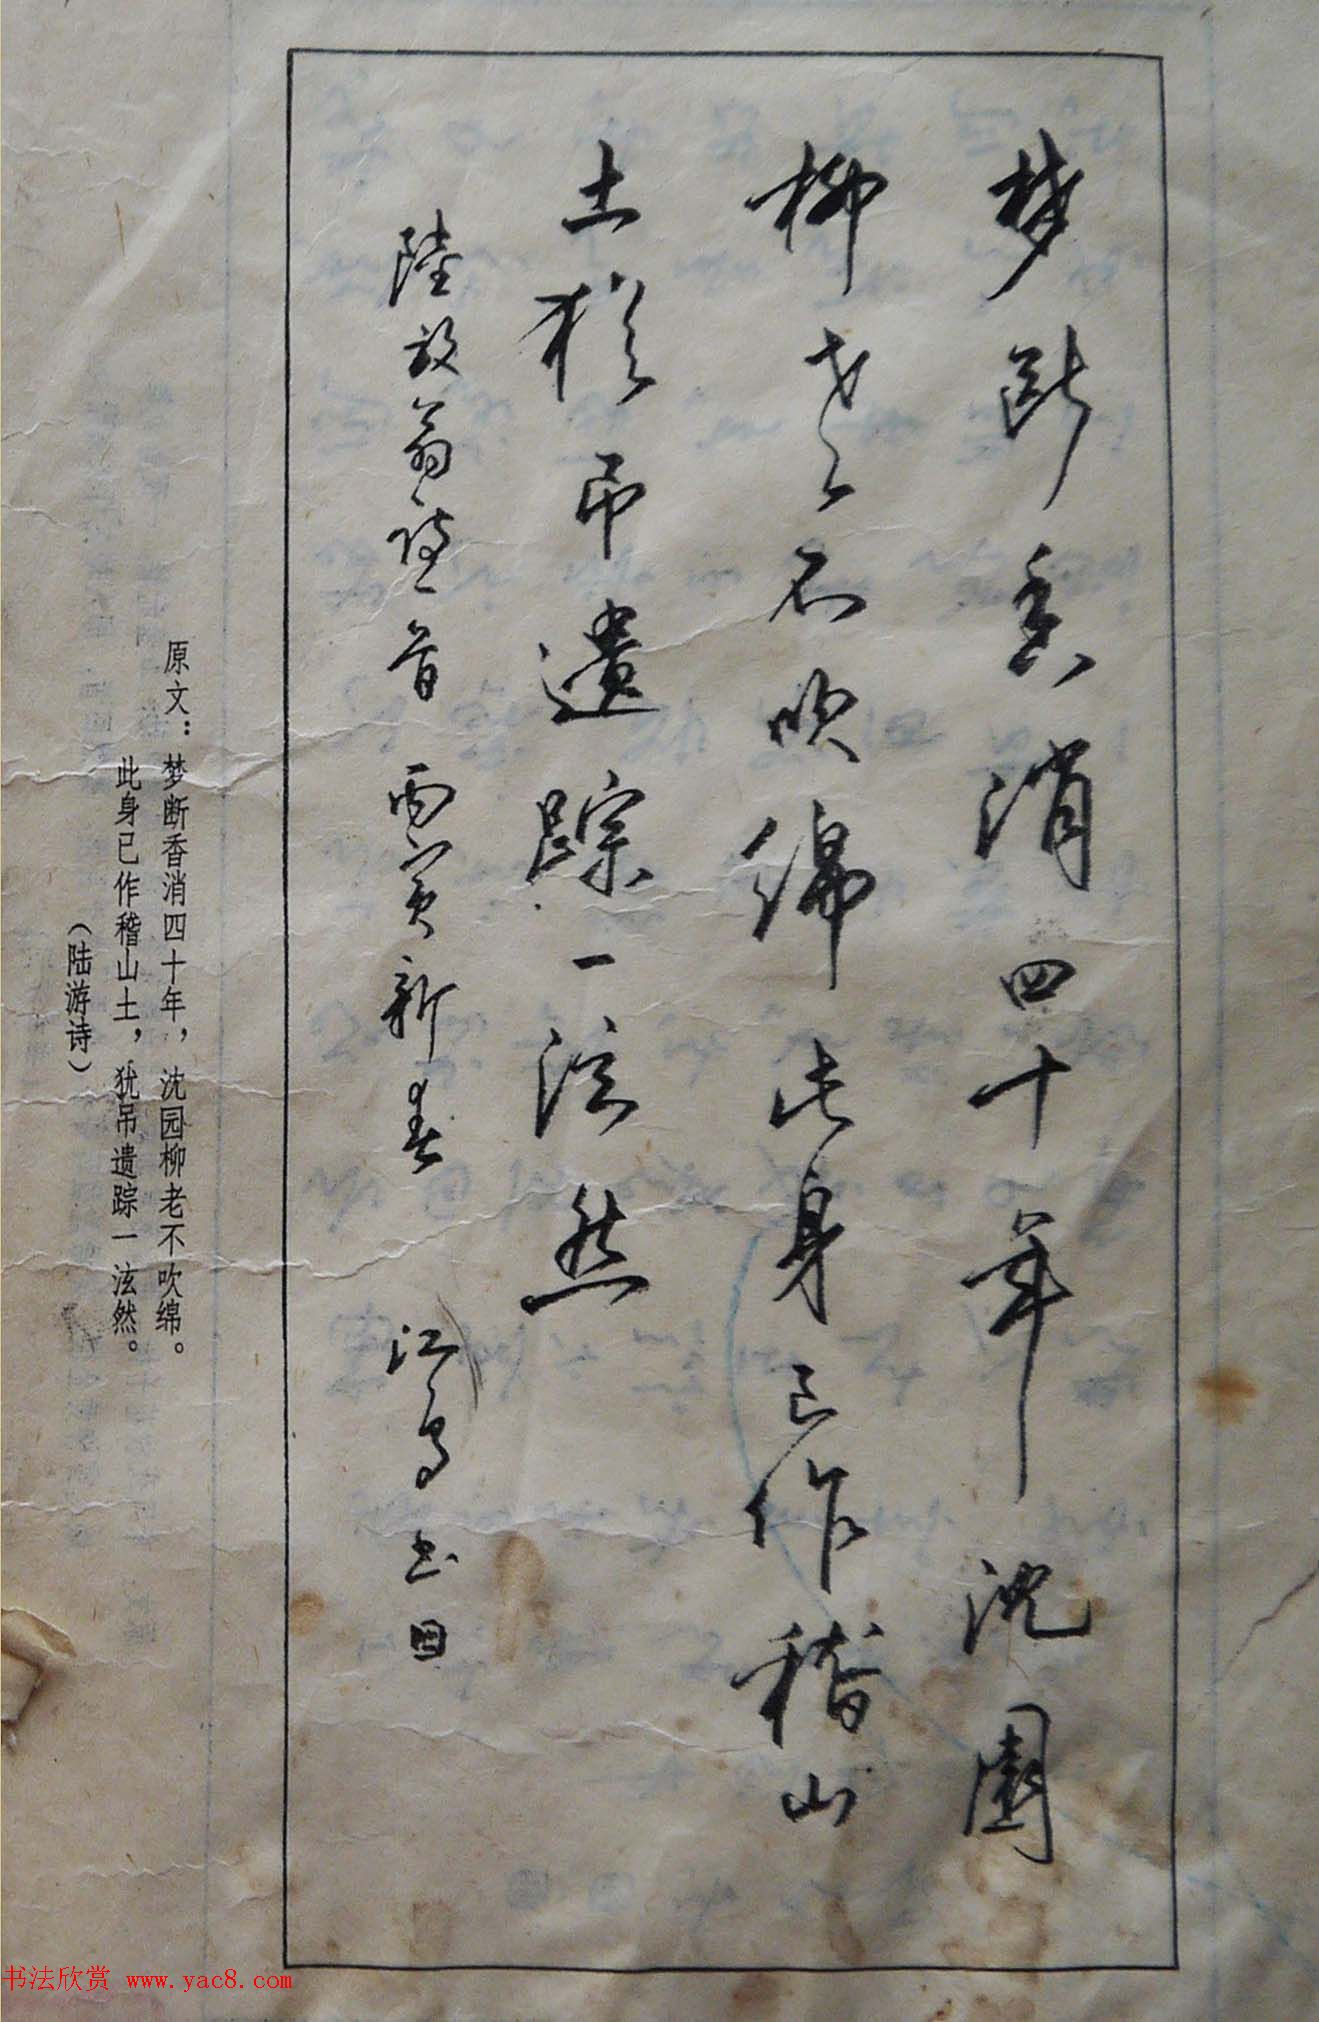 梦断香消四十年沈園
柳老不吹绵此身已作稽山
土犹吊遗踪一泫然
陸放翁诗一首 丙寅新春 江鸟书
原文：梦断香消四十年，沈园柳老不吹绵。
此身已作稽山土，犹吊遗踪一泫然。
（陆游诗）
书法欣赏 www.yac8.com